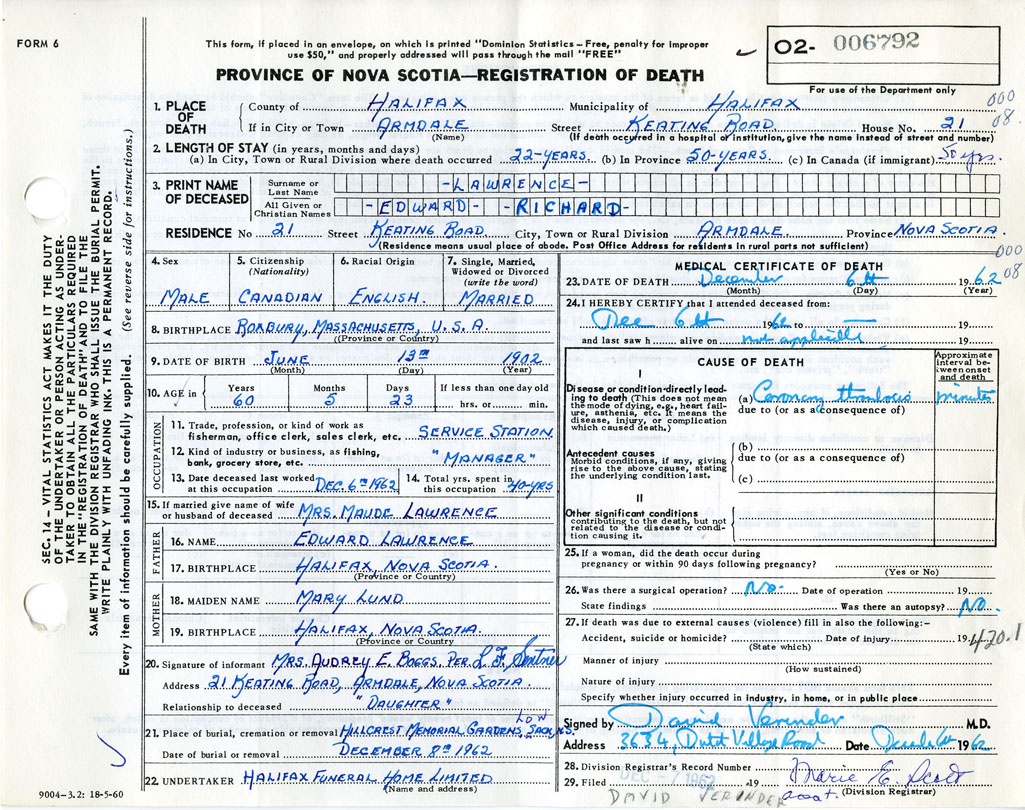 FORM 6
This form, if placed in an envelope, on which is printed "Dominion Statistics – Free, penalty for improper
use $50," and properly addressed will pass through the mail "FREE"
PROVINCE OF NOVA SCOTIA—REGISTRATION OF DEATH
02- 006792
For use of the Department only
000
08.
1. PLACE OF DEATH
County of HALIFAX Municipality of HALIFAX
If in City or Town ARMDALE Street KEATING ROAD House No. 21
(Name) (If death occurred in a hospital or institution, give the name instead of street and number)
2. LENGTH OF STAY (in years, months and days)
(a) In City, Town or Rural Division where death occurred 22-YEARS. (b) In Province 50-YEARS. (c) In Canada (if immigrant) 50 yrs.
3. PRINT NAME OF DECEASED
Surname or Last Name -LAWRENCE-
All Given or Christian Names -EDWARD- -RICHARD-
RESIDENCE No 21 Street KEATING ROAD City, Town or Rural Division ARMDALE Province NOVA SCOTIA.
(Residence means usual place of abode. Post Office Address for residents in rural parts not sufficient)
4. Sex
MALE
5. Citizenship (Nationality)
CANADIAN
6. Racial Origin
ENGLISH.
7. Single, Married, Widowed or Divorced (write the word)
MARRIED
8. BIRTHPLACE ROXBURY, MASSACHUSETTS, U.S.A.
(Province or Country)
9. DATE OF BIRTH JUNE 13th 1902
(Month) (Day) (Year)
10. AGE in
Years Months Days If less than one day old
60 5 23 hrs. or min.
OCCUPATION
11. Trade, profession, or kind of work as
fisherman, office clerk, sales clerk, etc. SERVICE STATION
12. Kind of industry or business, as fishing,
bank, grocery store, etc. "MANAGER"
13. Date deceased last worked
at this occupation DEC. 6th 1962
14. Total yrs. spent in
this occupation 40-YRS
15. If married give name of wife
or husband of deceased MRS. MAUDE LAWRENCE
FATHER
16. NAME EDWARD LAWRENCE
17. BIRTHPLACE HALIFAX, NOVA SCOTIA.
(Province or Country)
MOTHER
18. MAIDEN NAME MARY LUND
19. BIRTHPLACE HALIFAX, NOVA SCOTIA.
(Province or Country)
20. Signature of informant MRS. AUDREY E. BOGGS PER. L. F.
Address 21 KEATING ROAD, ARMDALE, NOVA SCOTIA.
Relationship to deceased "DAUGHTER"
21. Place of burial, cremation or removal HILLCREST MEMORIAL GARDENS, LOW. SACK, N.S.
Date of burial or removal DECEMBER 8th 1962
22. UNDERTAKER HALIFAX FUNERAL HOME LIMITED
(Name and address)
9004-3.2: 18-5-60
000
08
MEDICAL CERTIFICATE OF DEATH
23. DATE OF DEATH December 6th 1962
(Month) (Day) (Year)
24. I HEREBY CERTIFY that I attended deceased from:
Dec 6th 1962 to — 19
and last saw h alive on not applicable 19
CAUSE OF DEATH
Approximate interval between onset and death
I
Disease or condition directly leading to death (This does not mean
the mode of dying, e.g., heart failure, asthenia, etc. It means the
disease, injury, or complication
which caused death.)
(a) Coronary thrombosis minutes
due to (or as a consequence of)
Antecedent causes
Morbid conditions, if any, giving
rise to the above cause, stating
the underlying condition last.
(b)
due to (or as a consequence of)
(c)
II
Other significant conditions
contributing to the death, but not
related to the disease or condition causing it.
25. If a woman, did the death occur during
pregnancy or within 90 days following pregnancy?
(Yes or No)
26. Was there a surgical operation? No- Date of operation 19
State findings Was there an autopsy? No.
27. If death was due to external causes (violence) fill in also the following:-
Accident, suicide or homicide? Date of injury 19
(State which)
420.1
Manner of injury
(How sustained)
Nature of injury
Specify whether injury occurred in industry, in home, or in public place
Signed by David Verinder M.D.
Address 3634, Dutch Village Road Date Dec 1962
28. Division Registrar's Record Number
29. Filed DEC -7 1962 19 Marie E. Scott
asst. (Division Registrar)
DAVID VERINDER
SEC. 14 – VITAL STATISTICS ACT MAKES IT THE DUTY
OF THE UNDERTAKER OR PERSON ACTING AS UNDERTAKER TO OBTAIN ALL THE PARTICULARS REQUIRED
IN THE "REGISTRATION OF DEATH" AND TO FILE THE
SAME WITH THE DIVISION REGISTRAR WHO SHALL ISSUE THE BURIAL PERMIT.
WRITE PLAINLY WITH UNFADING INK. THIS IS A PERMANENT RECORD.
Every item of information should be carefully supplied. (See reverse side for instructions.)